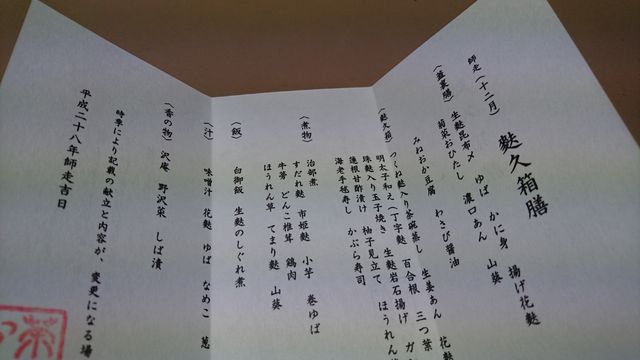 麩久箱膳
師走(十二月)
生麩昆布〆 ゆば かに身 揚げ花麩
菊菜おひたし 濃口あん 山葵
みねおか豆腐 わさび醤油
(麩久箱)
つくね麩入り茶碗蒸し 生姜あん 花麩
明太子和え(丁字麩 百合根 三つ葉
珠麩入り玉子焼き 生麩岩石揚げ
蓮根甘酢漬け 柚子見立て ほうれん
海老手毬寿し かぶら寿司
(煮物)
治部煮
すだれ麩 市姫麩 小芋 巻ゆば
牛蒡 どんこ椎茸 鶏肉
ほうれん草 てまり麩 山葵
(飯) 白御飯 生麩のしぐれ煮
(汁) 味噌汁 花麩 ゆば なめこ 葱
(香の物) 沢庵 野沢菜 しば漬
時季により記載の献立と内容が、変更になる場
平成二十八年師走吉日